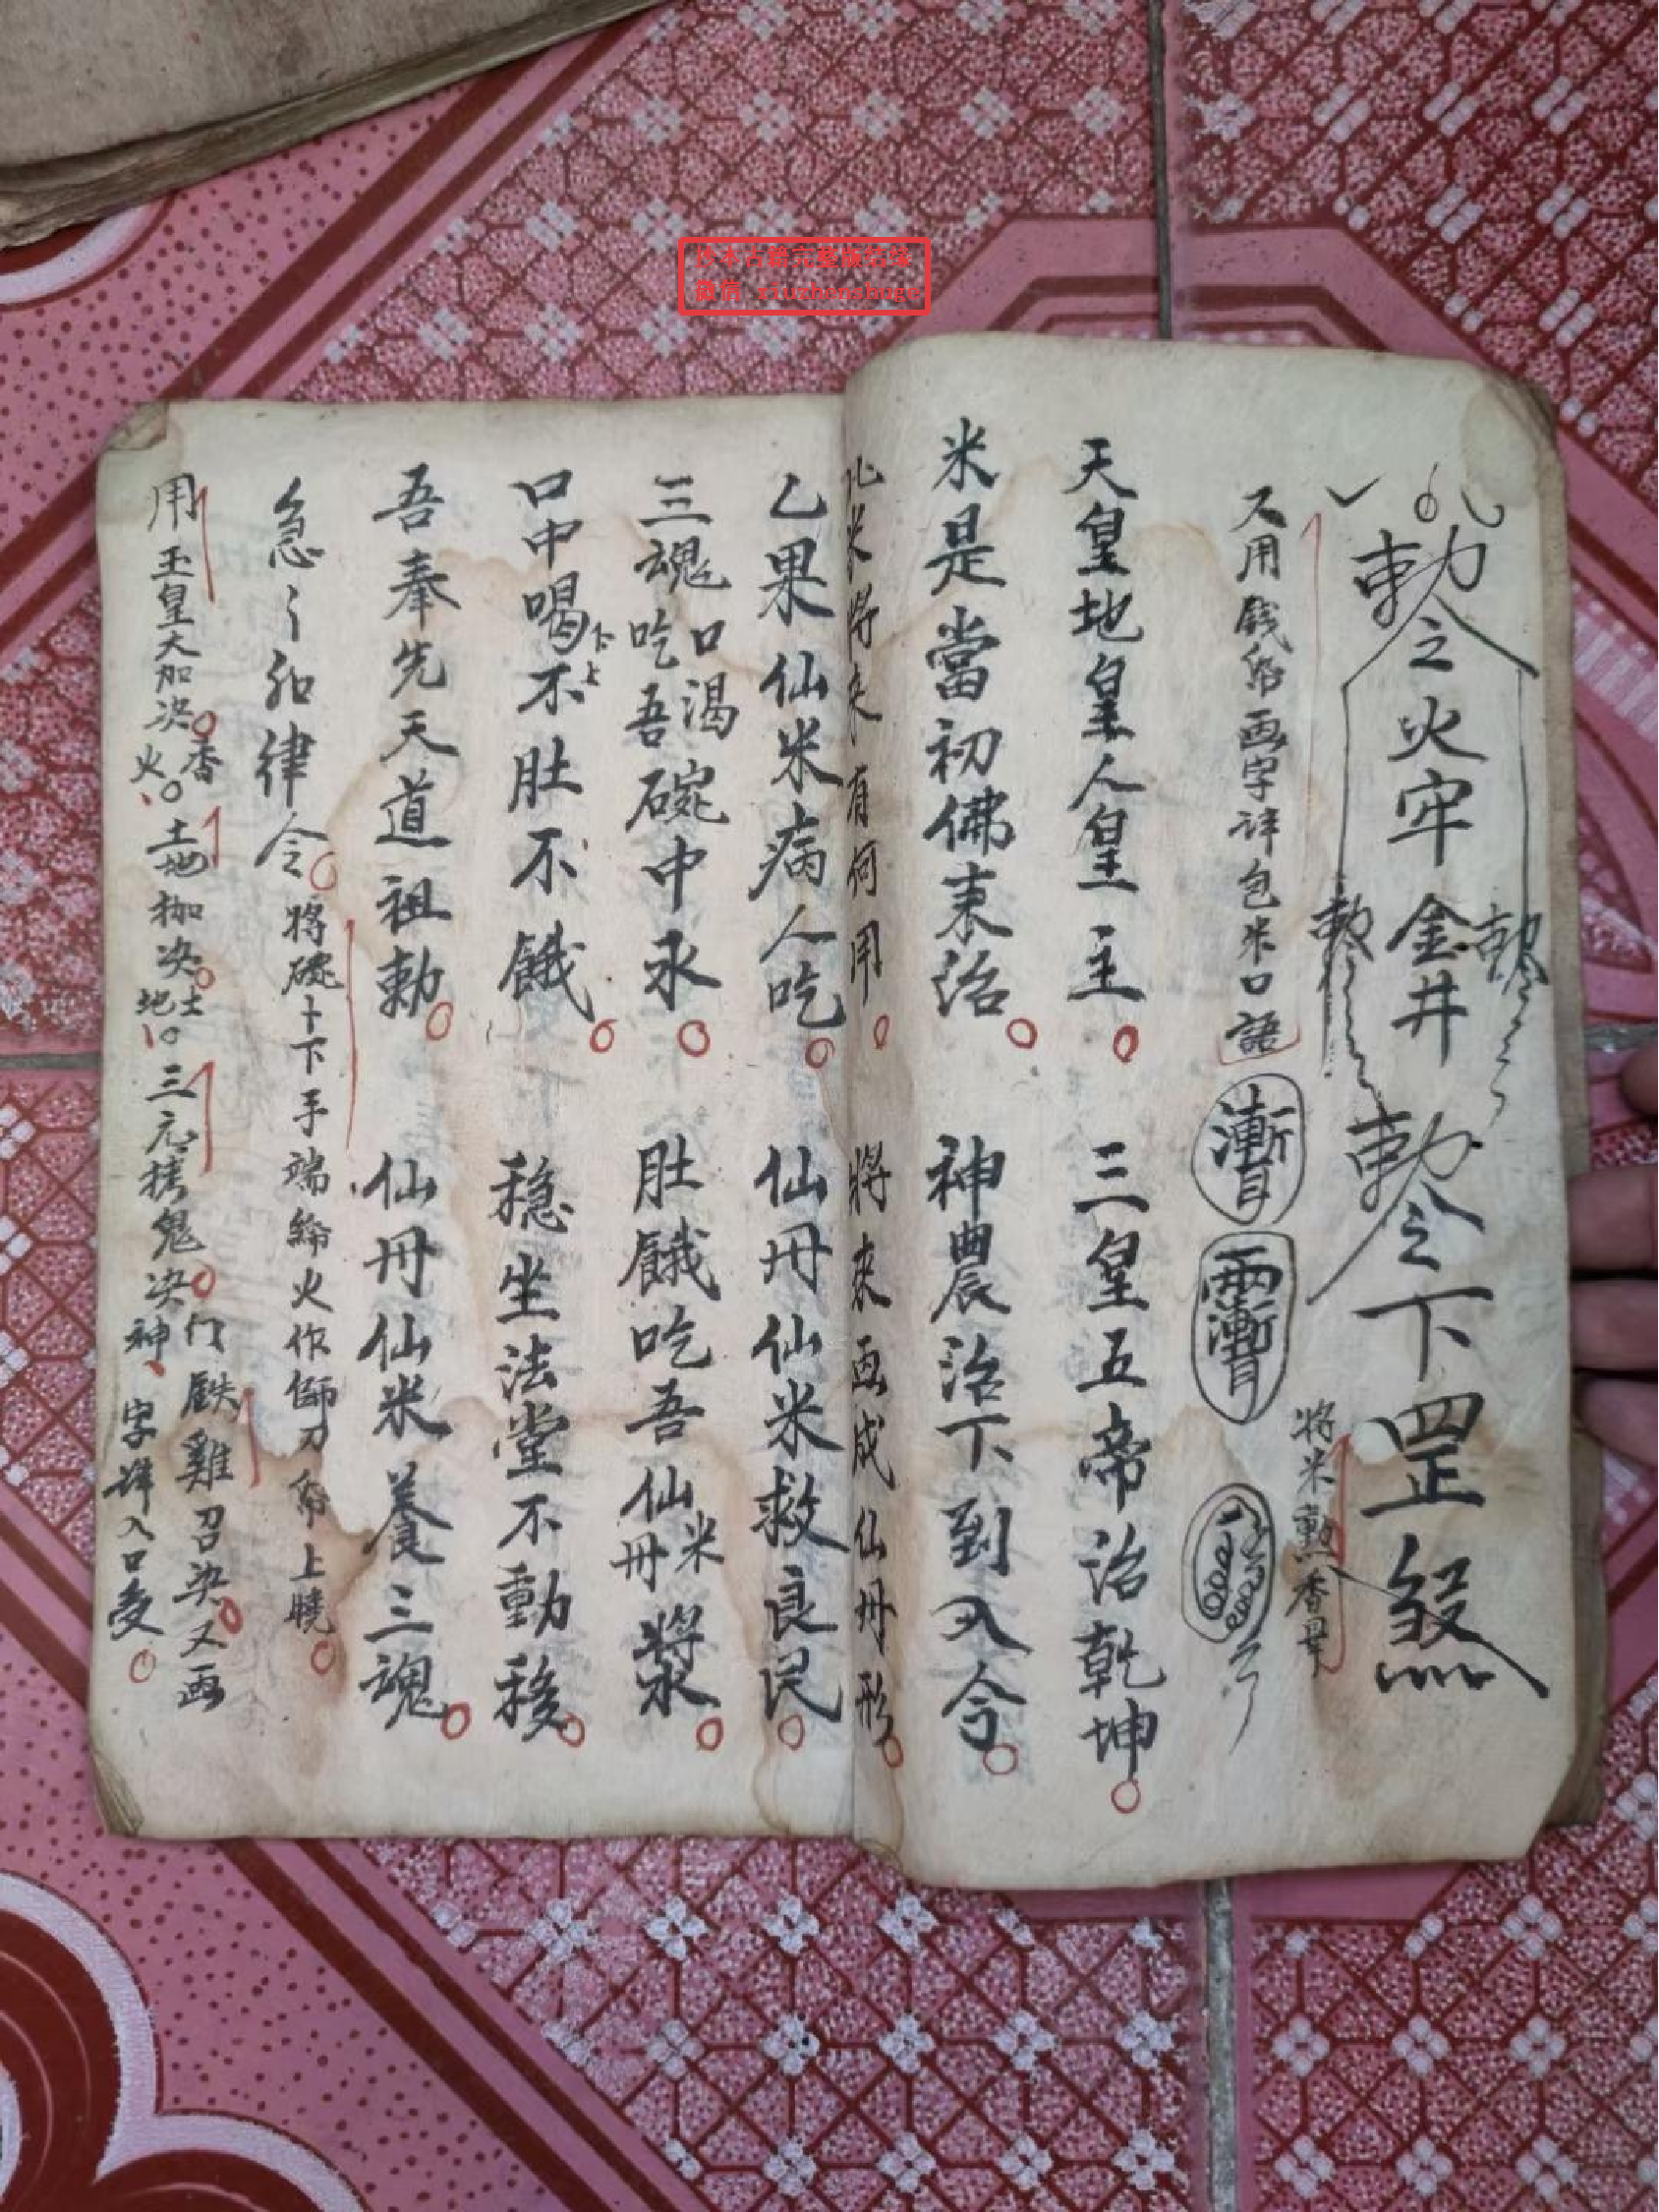 抄本古籍完整版结缘
微信 siuzhenshuge
勅令火牢金井勅令下罡煞
勅令
勅令
将米勲香
又用钱 画字讳包米口語
天皇地皇人皇主 三皇五帝治乾坤
米是當初佛来治 神農治下到入今
此米将来有何用 将来画成仙丹形
乙果仙米病人吃 仙丹仙米救良民
三魂口渴吃吾碗中水 肚餓吃吾仙米丹漿
口中喝不肚不餓 穏坐法堂不動移
吾奉先天道祖勅 仙丹仙米養三魂
急々如律令 将碗十下手端 火作師刀 上曉
用玉皇大加决 香火 土地枷决 土地 三元拷鬼决 門神 鉄雞召决 又画
字讳入口受